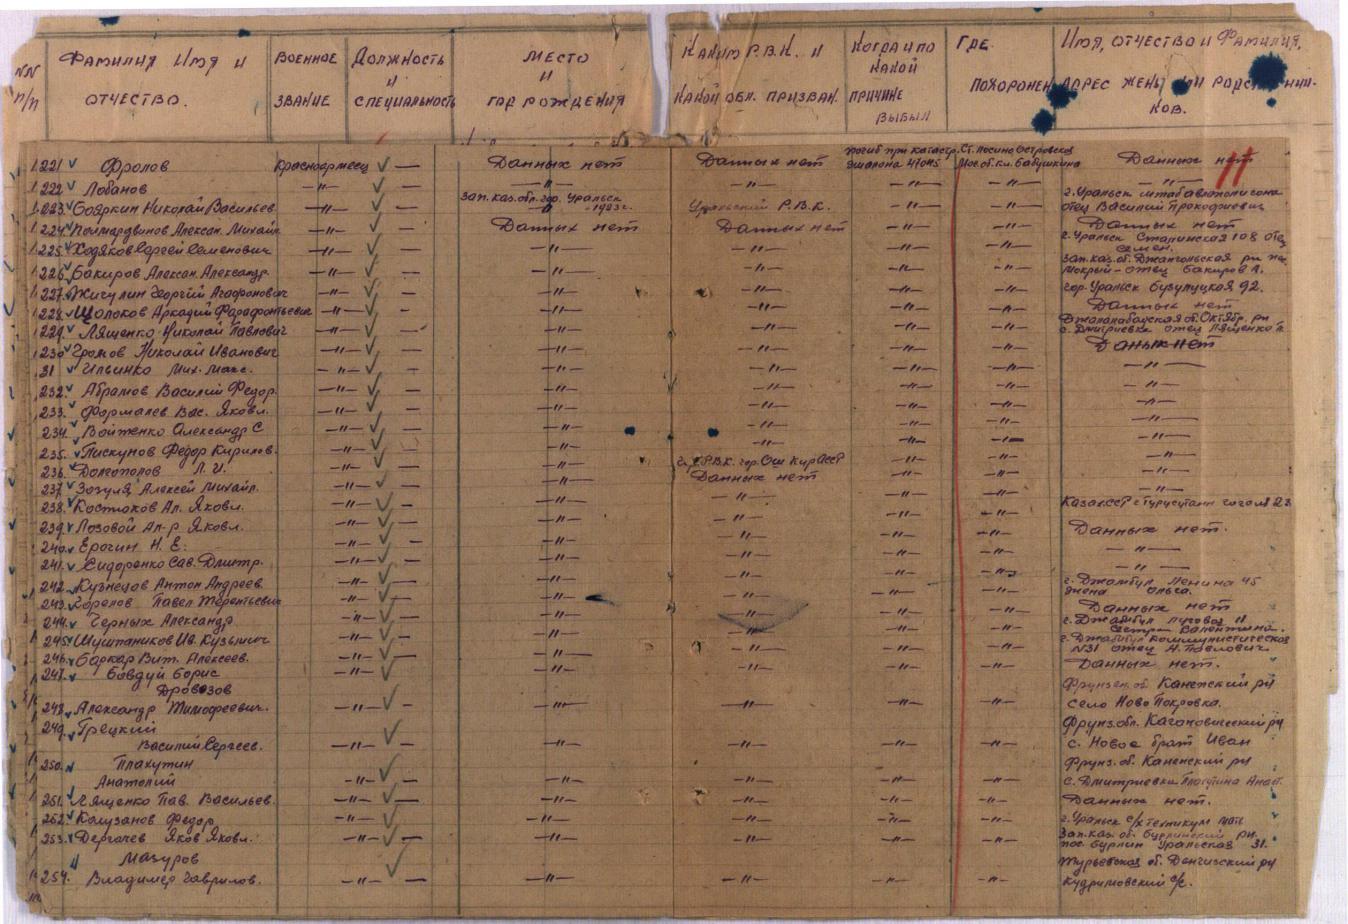 NN п/п ФАМИЛИЯ ИМЯ И ОТЧЕСТВО. ВОЕННОЕ ЗВАНИЕ ДОЛЖНОСТЬ И СПЕЦИАЛЬНОСТЬ МЕСТО И ГОД РОЖДЕНИЯ КАКИМ Р.В.К. И КАКОЙ ОБЛ. ПРИЗВАН. КОГДА И ПО КАКОЙ ПРИЧИНЕ ВЫБЫЛ ГДЕ ПОХОРОНЕН ИМЯ, ОТЧЕСТВО И ФАМИЛИЯ, АДРЕС ЖЕНЫ ИЛИ РОДСТВЕННИКОВ.
11
221 Фролов Красноармеец — Данных нет Данных нет погиб при катастр. эшалона 47045 Ст. Лосино Островская Мос. об. км. Бабушкина Данных нет
222 Лобанов —"— —"— —"— —"— —"— —"—
223. Бояркин Николай Васильев —"— — Зап. каз. обл. гор. Уральск 1923г. Уральский Р.В.К. —"— —"— г. Уральск отец Василий Прокофиевич
224 Алексан. Михайл —"— — Данных нет Данных нет —"— —"— Данных нет
225. Ходяков Сергей Семенович —"— — —"— —"— —"— —"— г. Уральск Сталинская 108 отец Семен.
226 Бакиров Алексан. Александр. —"— — —"— —"— —"— —"— Зап. каз. об. отец Бакиров А.
227. Жигулин Георгий Агафонович —"— — —"— —"— —"— —"— гор. Уральск Бузулуцкая 92.
228. Щолоков Аркадий Фарафонтьевич —"— — —"— —"— —"— —"— Данных нет
229. Лященко Николай Павлович —"— — —"— —"— —"— —"— Джалалабадская об. Октябр. рн с. Дмитриевка отец Лященко П.
230 Громов Николай Иванович —"— — —"— —"— —"— —"— Данык нет
31 Ильинко Мих. Макс. —"— — —"— —"— —"— —"— —"—
232. Абрамов Василий Федор. —"— — —"— —"— —"— —"— —"—
233. Формалев Вас. Яковл. —"— — —"— —"— —"— —"— —"—
234. Войженко Александр С —"— — —"— —"— —"— —"— —"—
235. Пискунов Федор Кирилов. —"— — —"— —"— —"— —"— —"—
236. Долгополов Л. И. —"— — —"— Р.В.К. гор. Ош Кир АССР —"— —"— —"—
237 Зозуля Алексей Михайл. —"— — —"— Данных нет —"— —"— —"—
238. Костюков Ал. Яковл. —"— — —"— —"— —"— —"— Казак ССР Гоголя 23
239. Лозовой Ал-р Яковл. —"— — —"— —"— —"— —"— Данных нет.
240. Ерогин Н. Е. —"— — —"— —"— —"— —"— —"—
241. Сидоренко Сав. Дмитр. —"— — —"— —"— —"— —"— —"—
242. Кузнецов Антон Андреев. —"— — —"— —"— —"— —"— г. Джамбул Ленина 45 жена Ольга.
243. Корелов Павел Терентьевич —"— — —"— —"— —"— —"— Данных нет
244. Черных Александр —"— — —"— —"— —"— —"— г. Джамбул Луговая 11 сестра Валентина.
245. Шуштаников Ив. Кузьмич —"— — —"— —"— —"— —"— г. Джамбул Коммунистическая N31 отец Н. Павлович
246. Баркар Вит. Алексеев. —"— — —"— —"— —"— —"— Данных нет.
247. Бовдуй Борис —"— — —"— —"— —"— —"—
Дровозов Фрунзен. об. Каненский рн
248. Александр Тимофеевич. —"— — —"— —"— —"— —"— село Ново Покровка.
249. Грецкий Фрунз. обл. Кагановический рн
Василий Сергеев. —"— — —"— —"— —"— —"— с. Новое брат Иван
250. Плахутин Фрунз. об. Каненский рн
Анатолий —"— — —"— —"— —"— —"— с. Дмитриевка
251. Лященко Пав. Васильев. —"— — —"— —"— —"— —"— Данных нет.
252. Колузанов Федор —"— — —"— —"— —"— —"— г. Уральск с/х техникум мать
253. Дергачев Яков Яковл. —"— — —"— —"— —"— —"— Зап. каз. об. Бурлинский рн. пос. Бурлин Уральская 31.
Мазуров Гурьевская об. Денгизский рн
254. Владимер Гаврилов. —"— —"— —"— —"— —"— Кудряшовский с/с.